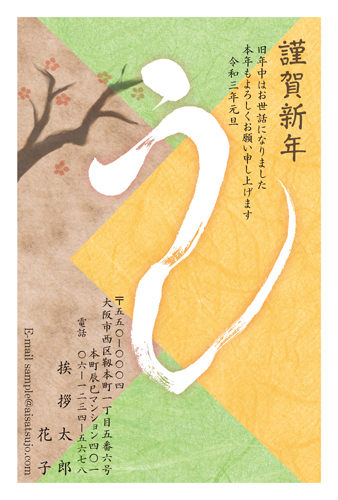 謹賀新年
旧年中はお世話になりました
本年もよろしくお願い申し上げます
令和三年元旦
〒五五〇－〇〇〇四
大阪市西区靱本町一丁目五番六号
本町辰巳マンション四〇一
電話　〇六－一二三四－五六七八
挨拶太郎
花子
E-mail sample@aisatsujo.com